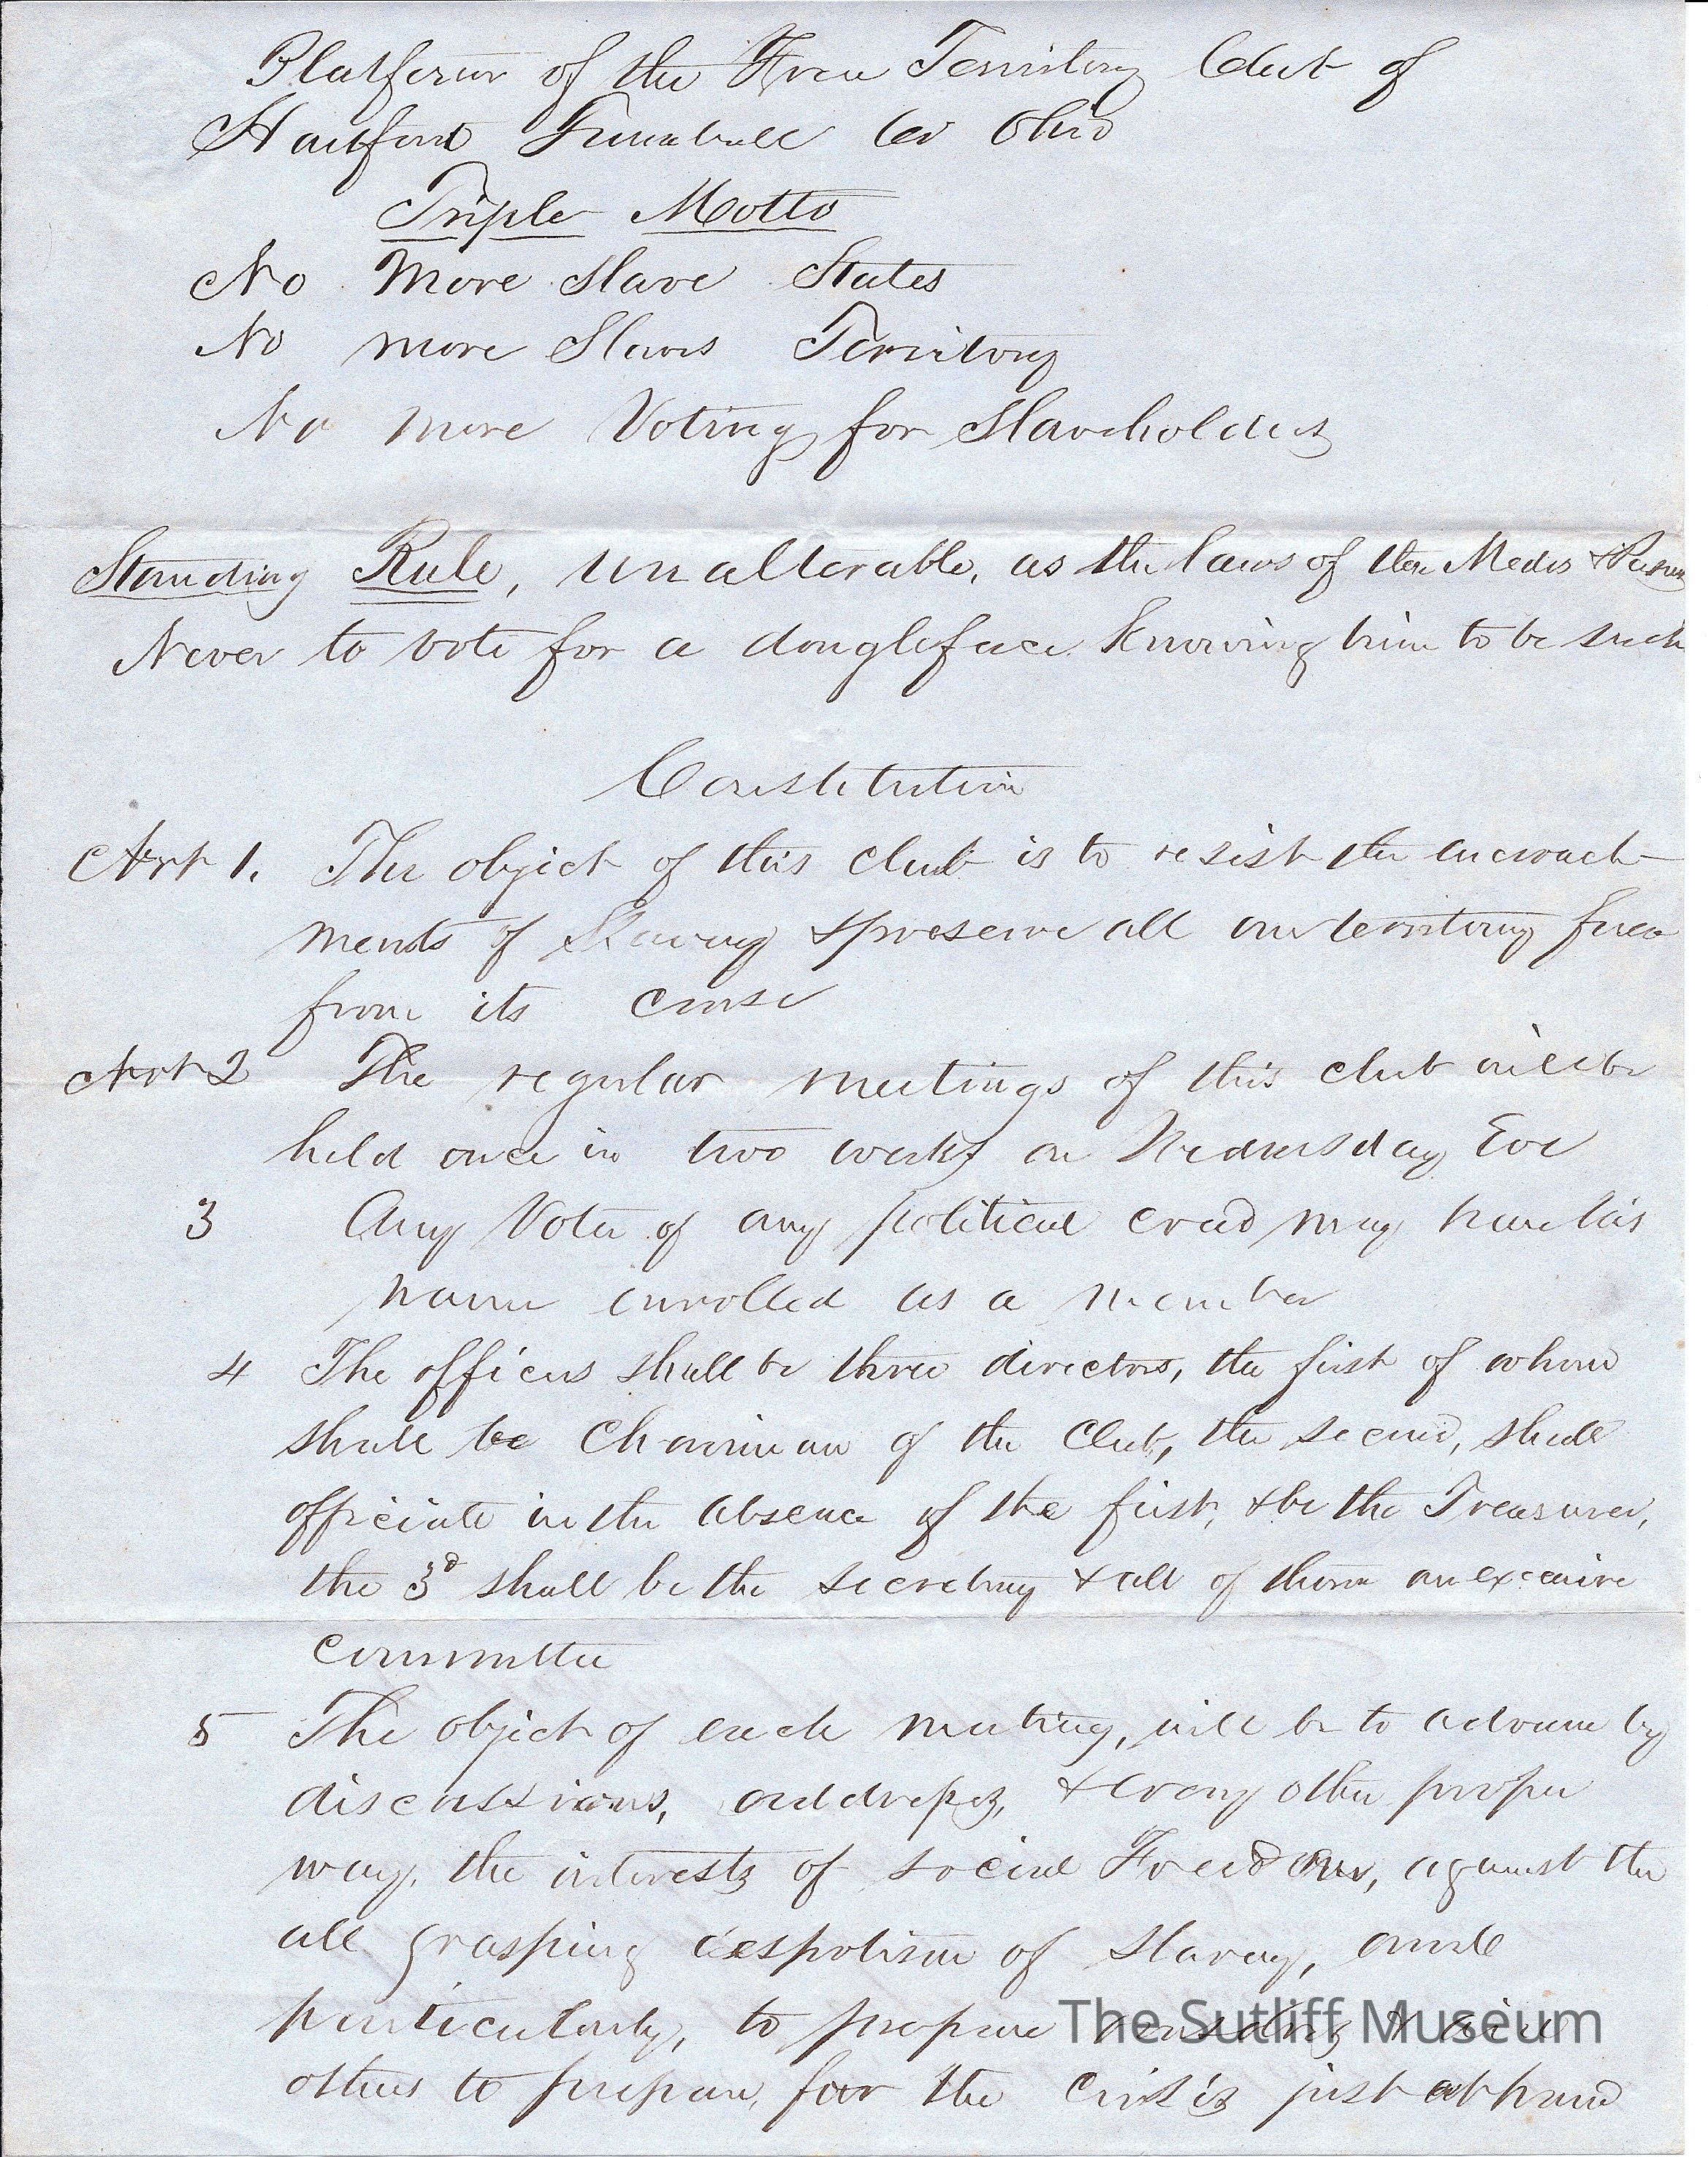 Platform of the Free Territory Club of
Hartford Trumbull Co Ohio
Triple Motto
No More Slave States
No more Slave Territory
No more Voting for Slaveholders
Standing Rule, unalterable, as the laws of the Medes & Persians
Never to vote for a doughface knowing him to be such
Constitution
Art 1. The object of this club is to resist the encroach-
ments of Slavery & preserve all our territory free
from its curse
Art 2 The regular meetings of this club will be
held once in two weeks on Wednesday Eve
3 Any Voter of any political creed may have his
name enrolled as a member
4 The officers shall be three directors, the first of whom
shall be Chairman of the Club, the second, shall
officiate in the absence of the first, & be the Treasurer,
the 3d shall be the secretary & all of them an excecutive
committee
5 The object of each meeting, will be to advance by
discussions, addresses, & every other proper
way, the interests of social Freedom, against the
all grasping despotism of Slavery, and
particularly, to prepare ourselves & aid
others to prepare, for the crisis just at hand
The Sutliff Museum